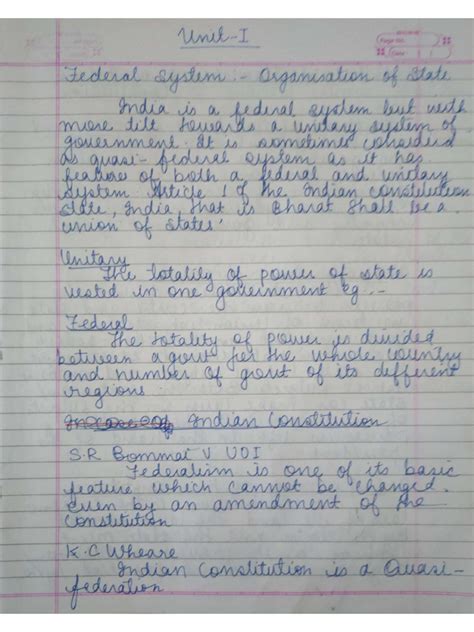 Unit-I
Page No.
Date
Federal System :- Organisation of State
India is a federal system but with
more tilt towards a unitary system of
government. It is sometimes considered
as quasi-federal system as it has
features of both a federal and unitary
system. Article 1 of the Indian constitution
state, India that is Bharat shall be a
union of states'
Unitary
The totality of power of state is
vested in one government eg. -
Federal
The totality of power is divided
between a govt for the whole country
and number of govt of its different
regions.
In case of Indian Constitution
S.R Bommai V UOI
Federalism is one of its basic
feature which cannot be changed
even by an amendment of the
constitution
K.C Wheare
Indian Constitution is a Quasi-
federation.